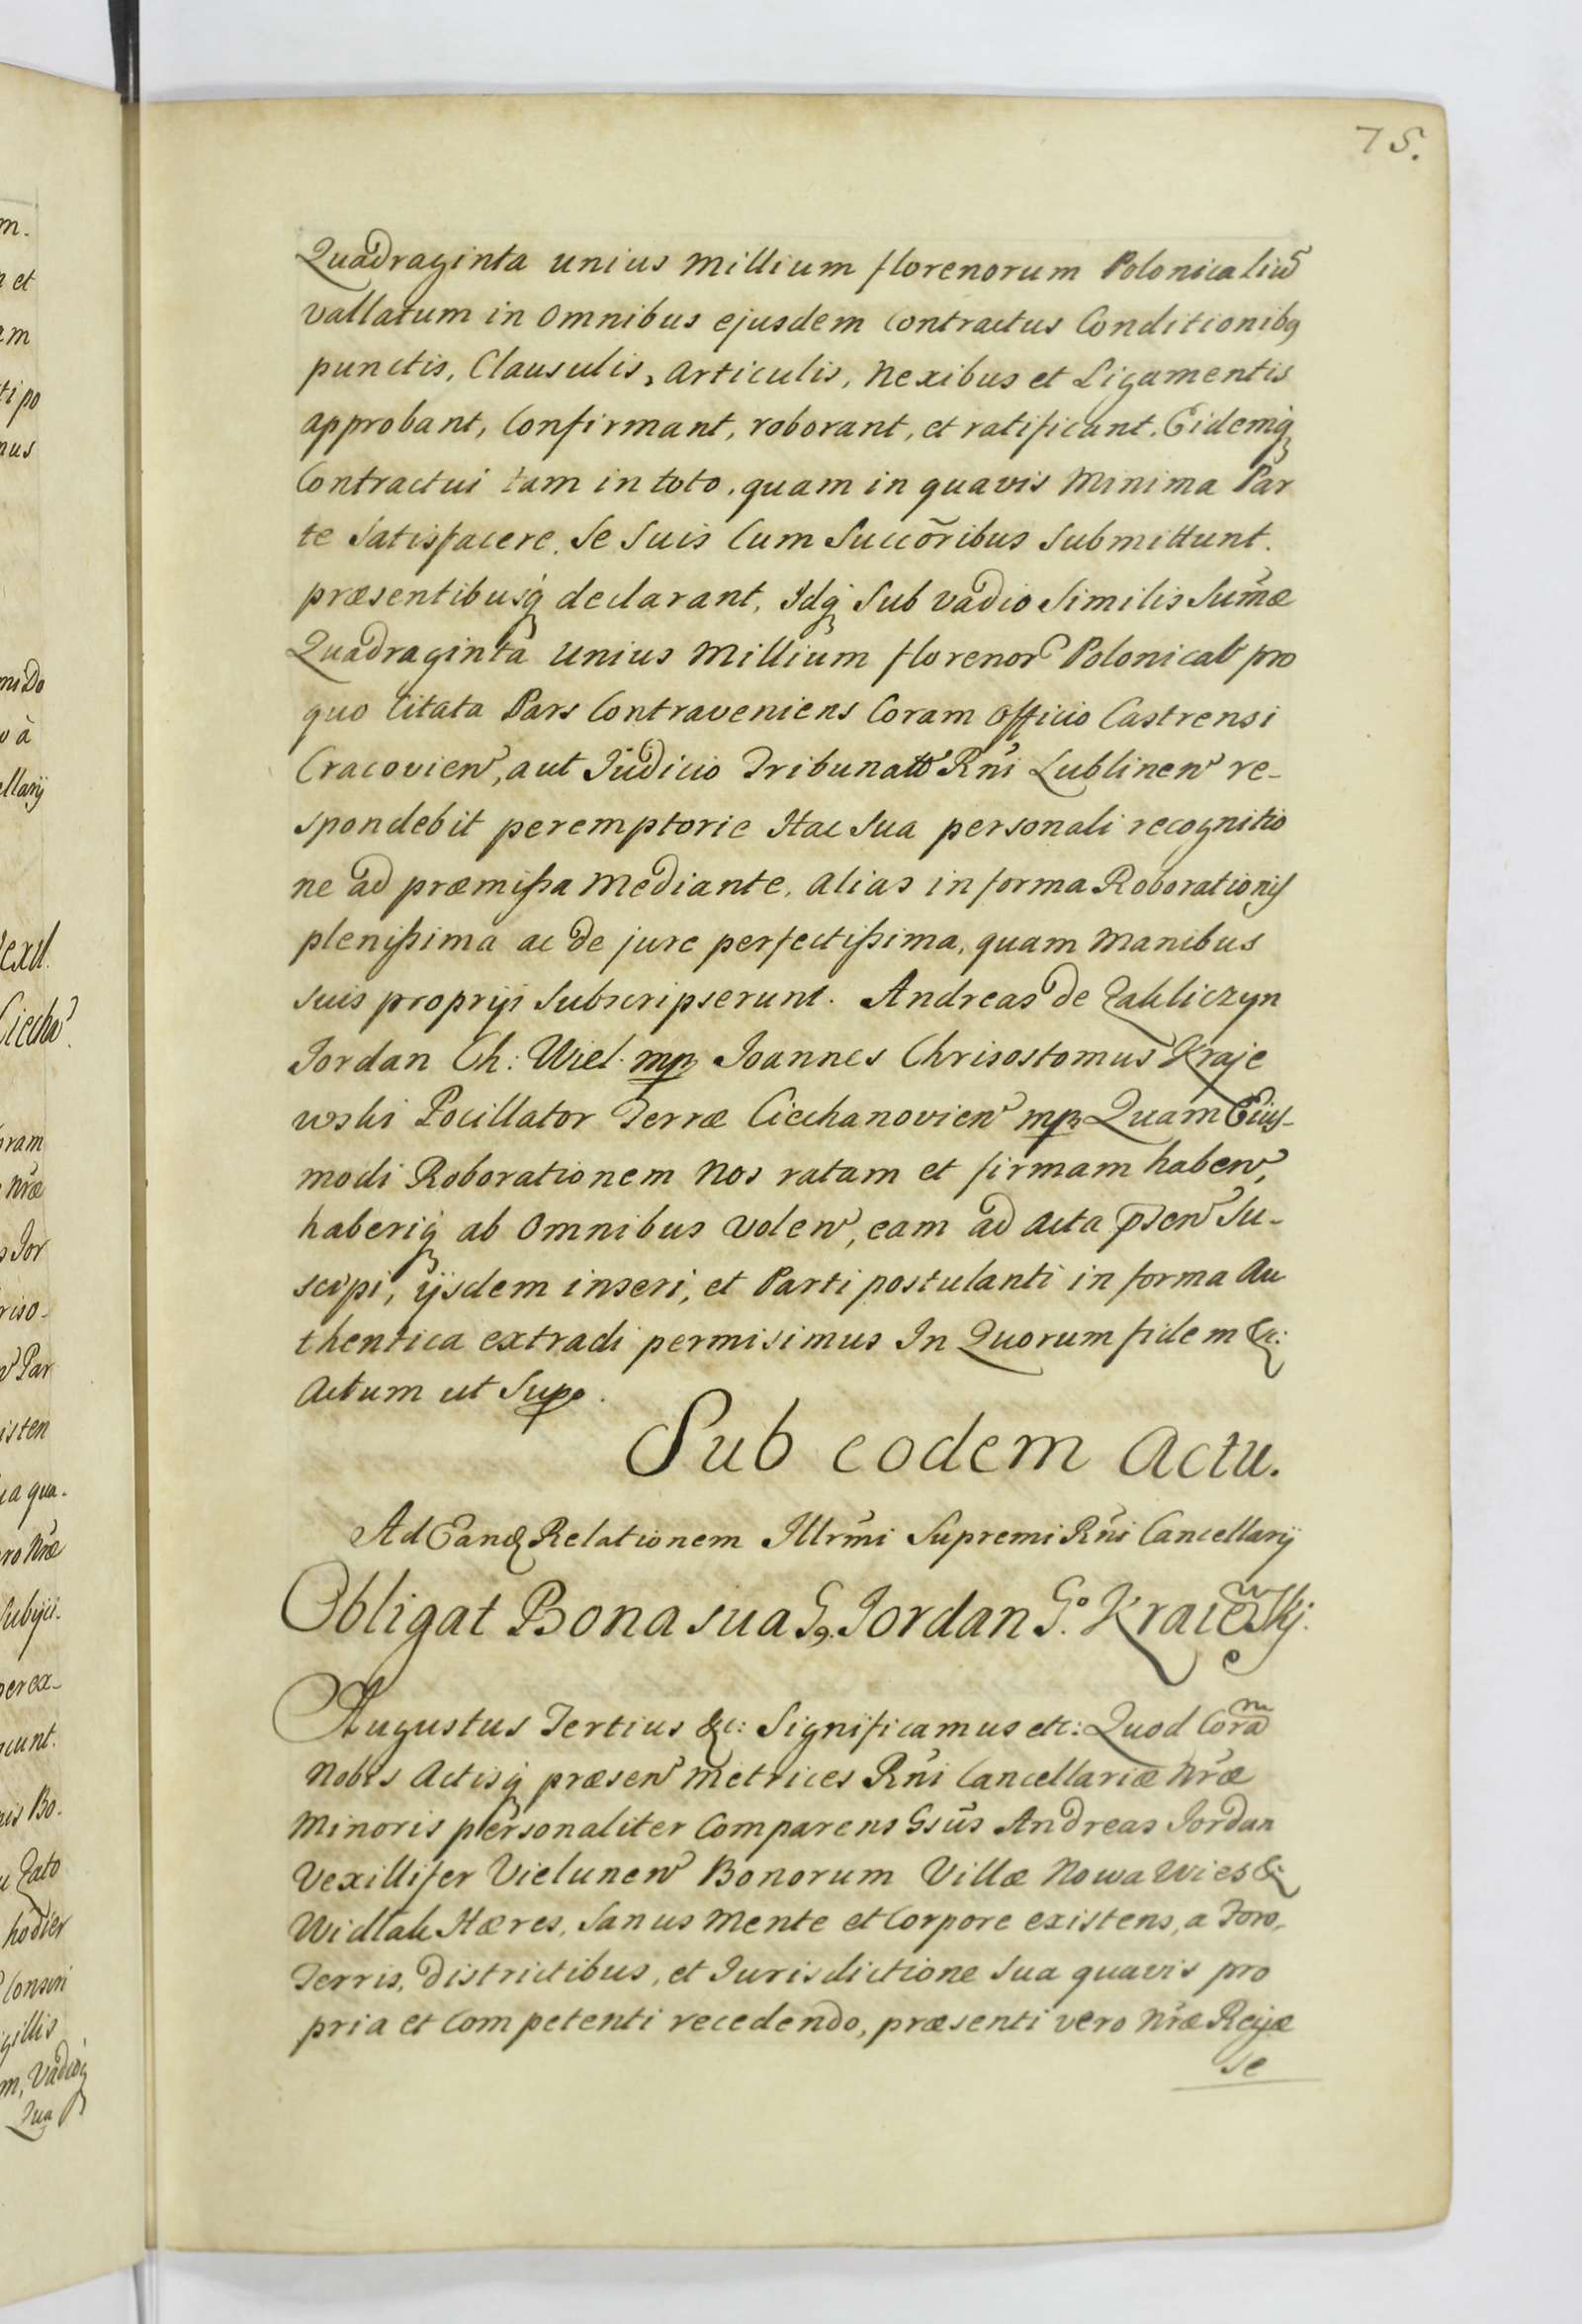 75.
Quadraginta unius Millium florenorum Polonicaliũ
vallatum in Omnibus ejusdem Contractus Conditionibq
punctis, Clausulis, Articulis, Nexibus et Ligamentis
approbant, Confirmant, roborant, et ratificant. Eidemq
Contractui tam in toto, quam in quavis Minima Par
te Satisfacere, Se Suis Cum Succõribus Submittunt.
præsentibusq declarant, Idq Sub vadio Similis Sum̃æ
Quadraginta unius Millium florenor Polonical pro
quo Citata Pars Contraveniens Coram Officio Castrensi
Cracovien, aut Judicio Tribunali Rñi Lublinen re-
spondebit peremptorie Hac Sua personali recognitio
ne ad præmißa Mediante, alias in forma Roborationis
plenißima ac de jure perfectißima, quam Manibus
Suis proprijs Subscripserunt. Andreas de Zakliczyn
Jordan Ch: Wiel. mp Joannes Chrisostomus Kraje
wski Pocillator Terræ Ciechanovien mp Quam Eius-
modi Roborationem Nos ratam et firmam haben,
haberiq ab Omnibus volen, eam ad Acta p̃sen Su-
scipi, ijsdem inseri, et Parti postulanti in forma Au
thentica extradi permisimus In Quorum fidem &c:
Actum ut Supᵃ.
Sub eodem Actu.
Ad Eand Relationem Illrm̃i Supremi Rñi Cancellarij
Obligat Bona sua Gs. Jordan Gº. Kraiewskj.
Augustus Tertius &c: Significamus etc: Quod Coraᵐ
Nobis Actisq præsen Metrices Rñi Cancellariæ Nr̃æ
Minoris personaliter Comparens Gsũs Andreas Jordan
Vexillifer Vielunen Bonorum Villæ Nowa Wies &
Widlak Hæres, Sanus Mente et Corpore existens, a Foro,
Terris, Districtibus, et Jurisdictione Sua quavis pro
pria et Competenti recedendo, præsenti vero Nr̃æ Regiæ
se